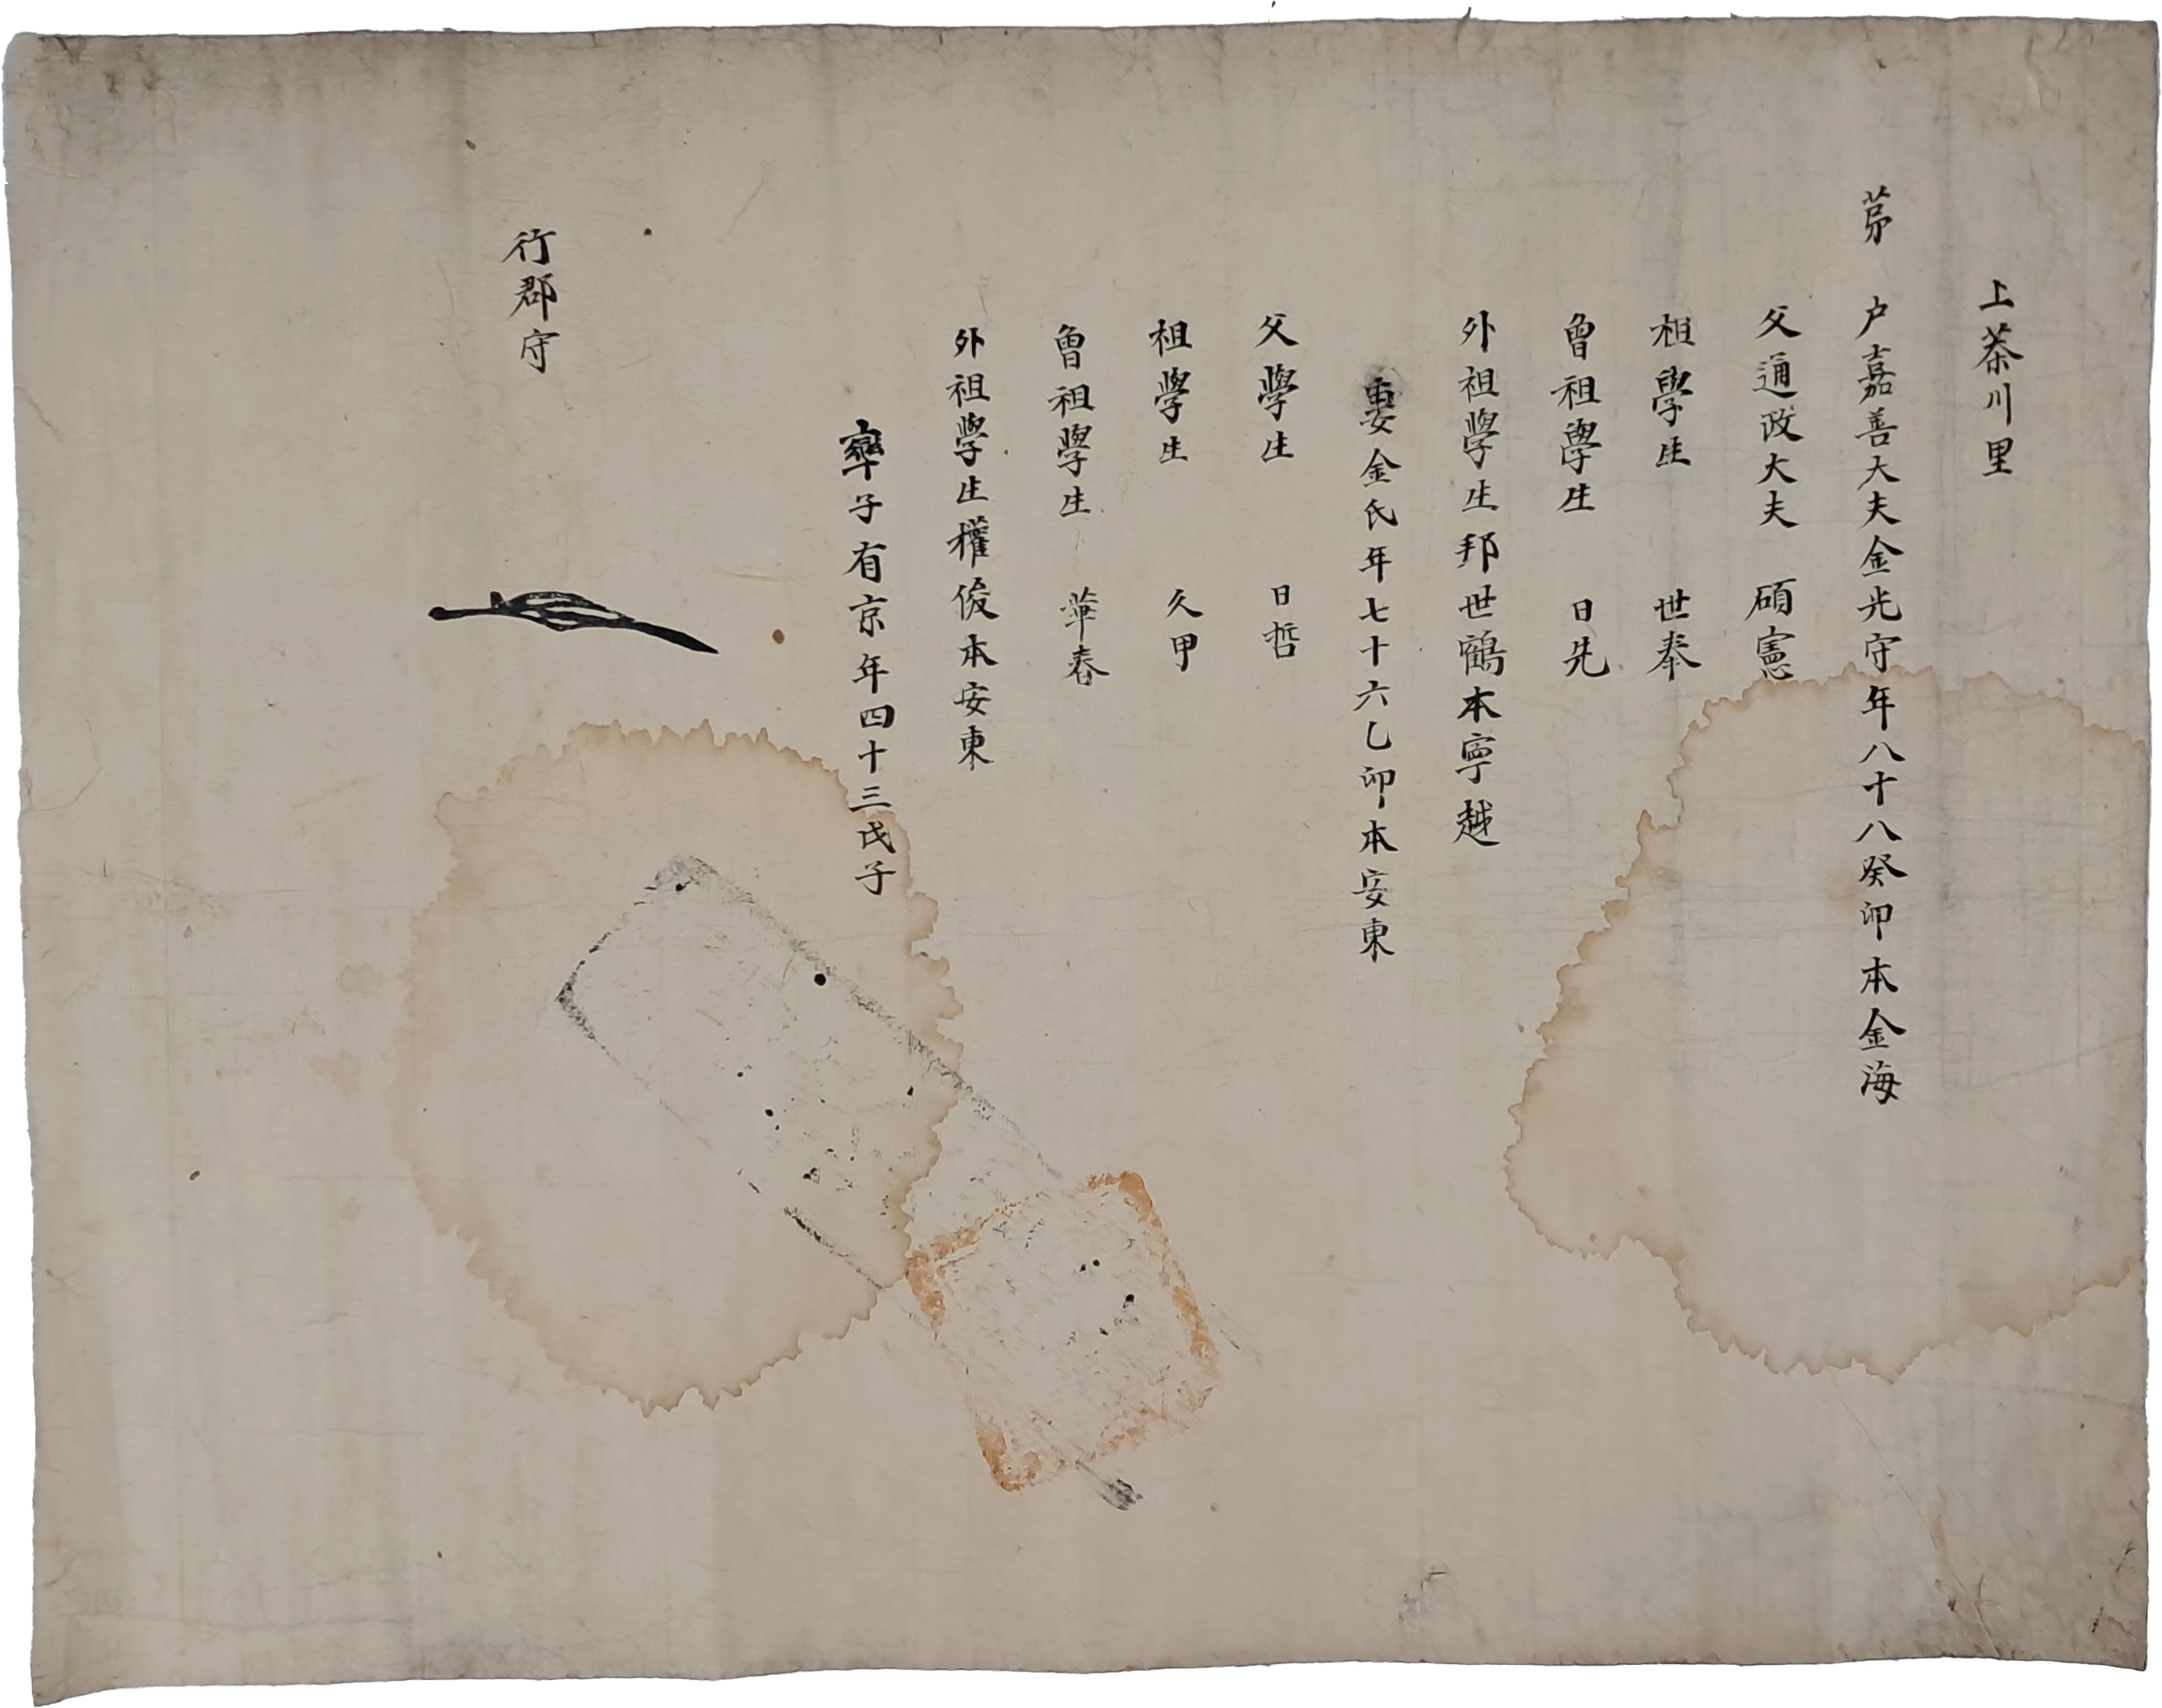 上茶川里
第 户嘉善大夫金光守年八十八癸卯本金海
父通政大夫 碩憲
祖學生 世奉
曾祖學生 日先
外祖學生邦世鶴本寧越
妻金氏年七十六乙卯本安東
父學生 日哲
祖學生 久甲
曾祖學生 華春
外祖學生權俊本安東
率子有京年四十三戊子
行郡守